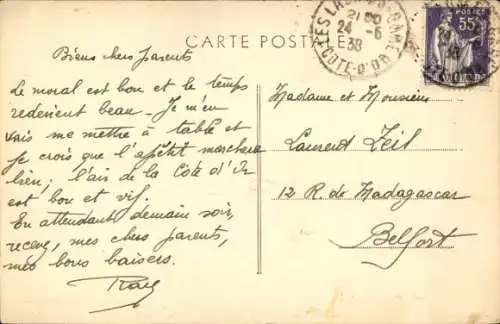 CARTE POSTALE
21 00
24-6
38
COTE-D'OR
POSTES
55c
Biens chers parents
Le moral est bon et le temps
redevient beau - Je m'en
vais me mettre à table et
je crois que l'apétit marchera
bien; l'air de la Côte d'Or
est bon et vif.
En attendant demain soir,
recevez, mes chers parents,
mes bons baisers.
Madame et Monsieur
Laurent Zeil
12 R. de Madagascar
Belfort